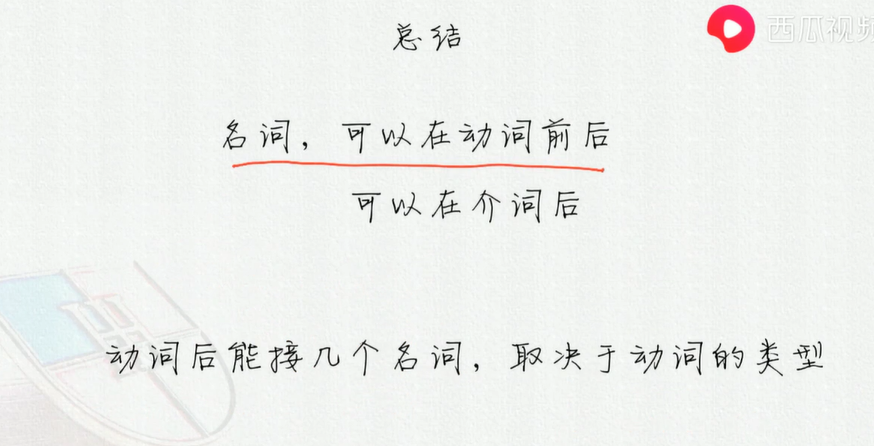 西瓜视频
总结
名词，可以在动词前后
可以在介词后
动词后能接几个名词，取决于动词的类型